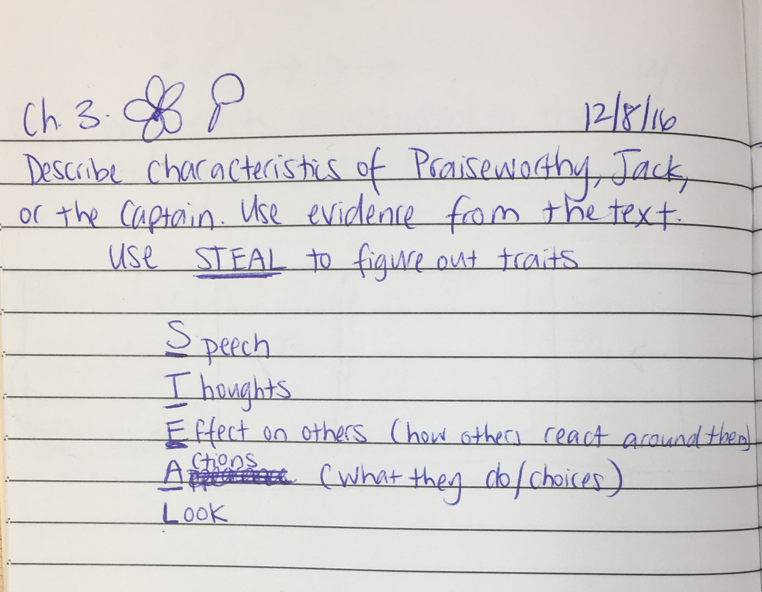 Ch. 3. 12/8/16
Describe characteristics of Praiseworthy, Jack,
or the Captain. Use evidence from the text.
Use STEAL to figure out traits
Speech
Thoughts
Effect on others (how others react around them)
Actions (what they do/choices)
Look